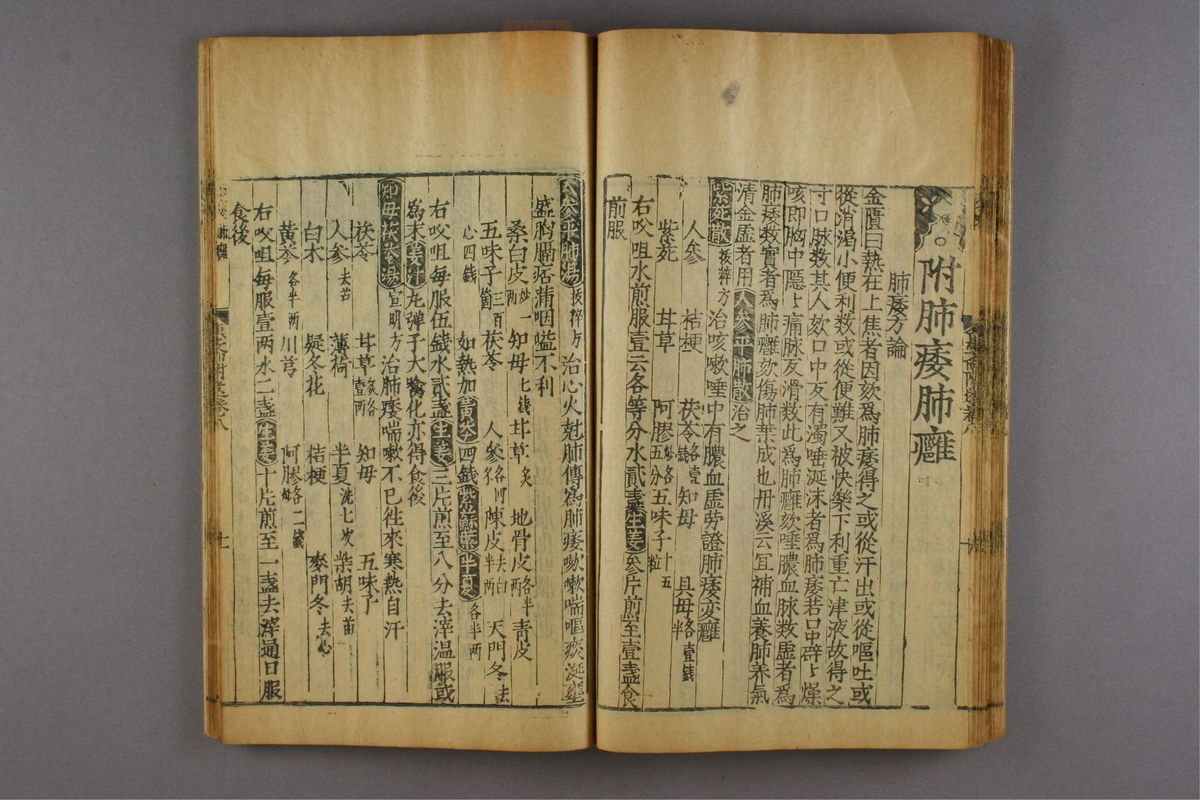 附肺痿肺癰
肺痿方論
金匱曰熱在上焦者因欬爲肺痿得之或從汗出或從嘔吐或
從消渴小便利数或從便難又被快樂下利重亡津液故得之
寸口脉数其人欬口中反有濁唾涎沫者爲肺痿若口中辟〻燥
咳即胸中隠〻痛脉反滑数此爲肺癰欬唾膿血脉数虚者爲
肺痿数實者爲肺癰欬傷肺葉成也丹溪云冝補血養肺养氣
清金虚者用人參平肺散治之
紫苑散拔粹方治咳嗽唾中有膿血虚劳證肺痿変癰
人參 桔梗 茯苓各壹錢 知母 貝母各壹錢半
紫苑 甘草 阿膠炒各五分 五味子十五粒
右㕮咀水煎服壹云各等分水貳盞生姜參片煎至壹盞食
前服
人參平肺湯拔粹方治心火尅肺傳爲肺痿咳嗽喘嘔痰涎壅
盛胸膈痞蒲咽嗌不利
桑白皮炒一两 知母七錢 甘草炙 地骨皮各半两 青皮
五味子三百箇 茯苓 人參各 陳皮去白半两 天門冬去
心四錢 如熱加黄芩四錢紫蘇葉半夏各半两
右㕮咀每服伍錢水貳盞生姜三片煎至八分去滓温服或
爲末姜汁丸弹子大噙化亦得食後
知母茯苓湯宣明方治肺痿喘嗽不已徃來寒熱自汗
茯苓 甘草炙各壹两 知母 五味子
人參去芦 薄荷 半夏洗七次 柴胡去苗
白术 欵冬花 桔梗 麥門冬去心
黄芩各半两 川芎 阿膠各二錢炒
右㕮咀每服壹两水二盞生姜十片煎至一盞去滓通口服
食後